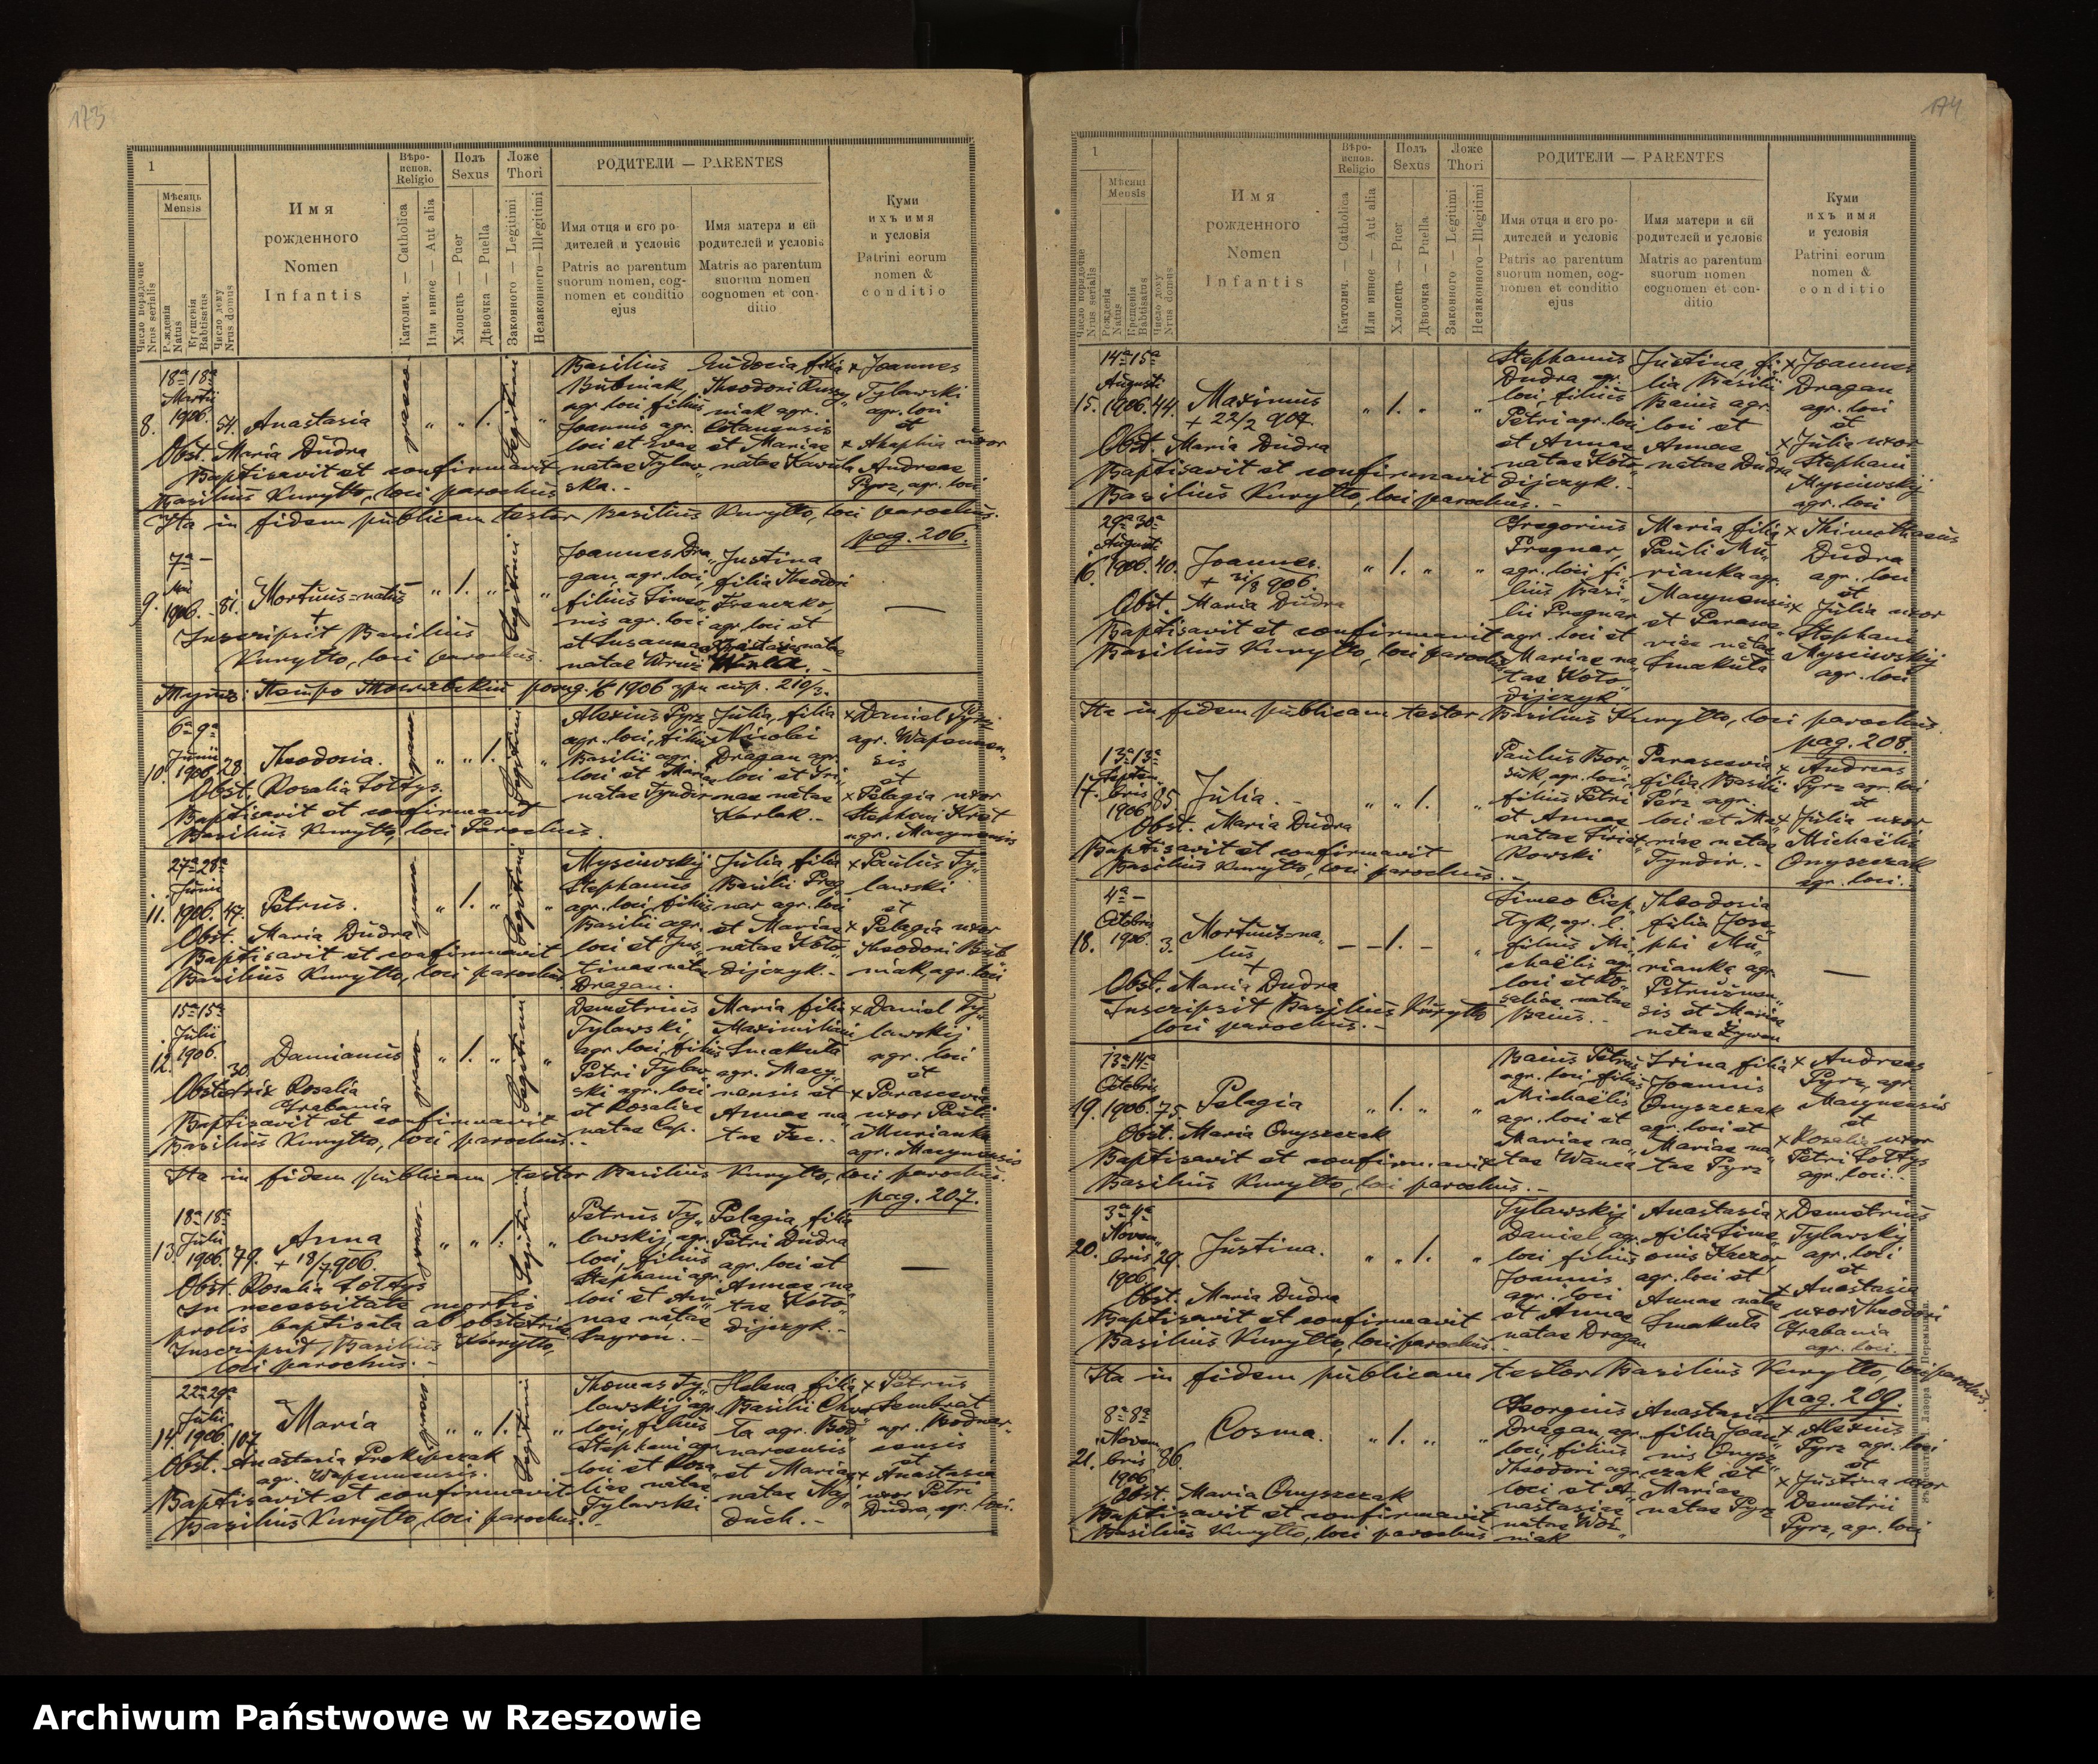 173
1
Мѣсяць
Mensis
Число порядочне
Nrus serialis
Рожденія
Natus
Крещенія
Babtisatus
Число дому
Nrus domus
Имя
рожденного
Nomen
Infantis
Вѣро-
испов.
Religio
Католич. — Catholica
Или инное — Aut alia
Полъ
Sexus
Хлопець — Puer
Дѣвочка — Puella
Ложе
Thori
Законного — Legitimi
Незаконного — Illegitimi
РОДИТЕЛИ — PARENTES
Имя отця и єго ро-
дителей и условіє
Patris ac parentum
suorum nomen, cog-
nomen et conditio
ejus
Имя матери и єй
родителей и условіє
Matris ac parentum
suorum nomen
cognomen et con-
ditio
Куми
ихъ имя
и условія
Patrini eorum
nomen &
conditio
18ª 18ª
Martii
1906.
8.
54.
Anastasia
Obst. Maria Dudra
Baptisavit et confirmavit
Basilius Kuryłło, loci parochus
Basilius
Bubniak,
agr. loci, filius
Joannis agr.
loci et Evae
natae Tylaw„
ska.-
Eudocia filia
niak agr.
et Mariae
x Joannes
Tylawski
agr. loci
et
uxor
Andreae
Pyrz, agr. loci
Ita in fidem publicam testor Basilius Kuryłło, loci parochus.
pag. 206.
7ª —
Mai
1906.
9.
81.
Mortuus-natus
+
Inscripsit Basilius
Kuryłło, loci parochus.
Joannes Dra„
gan, agr. loci,
filius Simeo„
nis agr. loci
et Susannae
Justina
filia Theodori
agr. loci et
6ª 9ª
Junii
1906.
10.
28.
Theodosia.
Obst. Rosalia Łołtys.
Baptisavit et confirmavit
Basilius Kuryłło, loci Parochus.
Alexius Pyrz
agr. loci, filius
Basilii agr.
loci et Mariae
natae Tyndir
Julia, filia
Nicolai
Dragan agr.
loci et Iri„
nae natae
Karlak.-
x Daniel Pyrz
agr. Wapennen„
sis
et
x Pelagia uxor
Stephani Krét
agr. Macynensis
27ª 28ª
Junii
1906.
11.
47.
Petrus.
Obst. Maria Dudra
Baptisavit et confirmavit
Basilius Kuryłło, loci parochus
Mysciwskij
Stephanus
agr. loci, filius
Basilii agr.
loci et Jus„
tinae natae
Dragan.
Julia, filia
Basilii Preg„
nar agr. loci
et Mariae
natae Koło„
dijczyk.-
x Paulus Ty„
lawski
et
x Pelagia uxor
Theodori Bub„
niak, agr. loci
15ª 15ª
Julii
1906.
12.
30.
Damianus
Obstetrix Rosalia
Grabania
Baptisavit et confirmavit
Basilius Kuryłło, loci parochus.-
Demetrius
Tylawski,
agr. loci, filius
Petri Tylaw„
ski agr. loci
et Rosaliae
natae Cyp.
Maria filia
Maximiliani
Smakuła
agr. Macy„
nensis et
Annae na„
tae Fec.-
x Daniel Ty„
lawskij
agr. loci
et
x Parascevia
uxor Pauli
Murianka
agr. Macynensis
Ita in fidem publicam testor Basilius Kuryłło, loci parochus.
pag. 207.
18ª 18ª
Julii
1906.
13.
79.
Anna
+ 18/7 906.
Obst. Rosalia Łołtys
In necessitate mortis
prolis baptisata ab obstetrice
Inscripsit Basilius Kuryłło,
loci parochus.-
Petrus Ty„
lawskij, agr.
loci, filius
Stephani agr.
loci et An„
nae natae
Pelagia, filia
Petri Dudra
agr. loci et
Annae na„
tae Koło„
dijczyk.-
22ª 29ª
Julii
1906.
14.
107.
Maria
Obst. Anastasia Prokipczak
agr. Wapennensis.
Baptisavit et confirmavit
Basilius Kuryłło, loci parochus.-
Thomas Ty„
lawskij agr.
loci, filius
Stephani agr.
loci et Rosa„
liae natae
Tylawski
Helena filia
Basilii Chwas„
ta agr. Bod„
narcensis
et Mariae
natae Maj„
duch.-
x Petrus
Sembrat
agr. Bodnar„
censis
et
x Anastasia
uxor Petri
Dudra, agr. loci.
174
1
Мѣсяць
Mensis
Число порядочне
Nrus serialis
Рожденія
Natus
Крещенія
Babtisatus
Число дому
Nrus domus
Имя
рожденного
Nomen
Infantis
Вѣро-
испов.
Religio
Католич. — Catholica
Или инное — Aut alia
Полъ
Sexus
Хлопець — Puer
Дѣвочка — Puella
Ложе
Thori
Законного — Legitimi
Незаконного — Illegitimi
РОДИТЕЛИ — PARENTES
Имя отця и єго ро-
дителей и условіє
Patris ac parentum
suorum nomen, cog-
nomen et conditio
ejus
Имя матери и єй
родителей и условіє
Matris ac parentum
suorum nomen
cognomen et con-
ditio
Куми
ихъ имя
и условія
Patrini eorum
nomen &
conditio
14ª 15ª
Augusti
1906.
15.
44.
Maximus
+ 22/2 907.
Obst. Maria Dudra
Baptisavit et confirmavit
Basilius Kuryłło, loci parochus.-
Stephanus
Dudra agr.
loci, filius
Petri agr. loci
et Annae
natae Koło„
dijczyk.-
Justina, fi„
lia Basilii
Baius agr.
loci et
Annae
natae Dudra
x Joannes
Dragan
agr. loci
et
x Julia uxor
Stephani
Myscíwskij
agr. loci
29ª 30ª
Augusti
1906.
16.
40.
Joannes.
+ 31/8 906.
Obst. Maria Dudra
Baptisavit et confirmavit
Basilius Kuryłło, loci parochus
Gregorius
Pregnar,
agr. loci fi„
lius Basi„
lii Pregnar
agr. loci et
Mariae na„
tae Koło„
dijczyk
Maria filia
Pauli Mu„
rianka agr.
Macynensis
et Parasce„
viae natae
Smakuła
x Thimotheus
Dudra
agr. loci
et
x Julia uxor
Stephani
Myscíwskij
agr. loci
Ita in fidem publicam testor Basilius Kuryłło, loci parochus.
pag. 208.
13ª 13ª
Septem„
bris
1906
17.
85.
Julia.-
Obst. Maria Dudra
Baptisavit et confirmavit
Basilius Kuryłło, loci parochus.-
Paulus Bor„
suk, agr. loci,
filius Petri
et Annae
Parascevia
filia Basilii
Perz agr.
loci et Ma„
riae natae
Tyndir.-
x Andreas
Pyrz agr. loci
et
x Julia uxor
Michaëlis
Onyszczak
agr. loci.-
4ª —
Octobris
1906.
18.
3.
Mortuus-na„
tus
+
Obst. Maria Dudra
Inscripsit Basilius Kuryłło
loci parochus.-
Simeo Ciep„
łyk, agr. l.
filius Mi„
chaëlis agr.
loci et Ro„
saliae natae
Baius.-
Theodosia
filia Jose„
phi Mu„
rianka agr.
sis et Mariae
natae Żywan
13ª 14ª
Octobris
1906.
19.
75.
Pelagia
Obst. Maria Onyszczak
Baptisavit et confirmavit
Basilius Kuryłło, loci parochus.-
Baius Petrus
agr. loci filius
Michaëlis
agr. loci et
Mariae na„
tae Wanca
Irina filia
Joannis
Onyszczak
agr. loci et
Mariae na„
tae Pyrz
x Andreas
Pyrz, agr
Macynensis
et
x Rosalia uxor
Petri Łołtys
agr. loci.-
3ª 4ª
Novem„
bris
1906.
20.
29.
Justina.
Obst. Maria Dudra
Baptisavit et confirmavit
Basilius Kuryłło, loci parochus.-
Tylawskij
Daniel, agr.
loci filius
Joannis
agr. loci
et Annae
natae Dragan
Anastasia
filia Sime„
onis Kaczor,
agr. loci et
Annae natae
Smakuła
x Demetrius
Tylawskij
agr. loci
et
x Anastasia
uxor Theodori
Grabania
agr. loci.
Ita in fidem publicam testor Basilius Kuryłło, loci parochus.
pag. 209.
8ª 8ª
Novem„
bris
1906
21.
86.
Cosma.
Obst. Maria Onyszczak
Baptisavit et confirmavit
Basilius Kuryłło, loci parochus
Georgius
Dragan, agr.
loci, filius
Theodori agr.
loci et A„
nastasiae
natae Woź„
niak
Anastasia
filia Joan„
nis Onysz„
czak et
Mariae
natae Pyrz
x Alexius
Pyrz agr. loci
et
x Justina uxor
Demetrii
Pyrz, agr. loci
Archiwum Państwowe w Rzeszowie